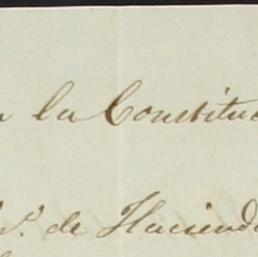 la Constitu
de Haciend